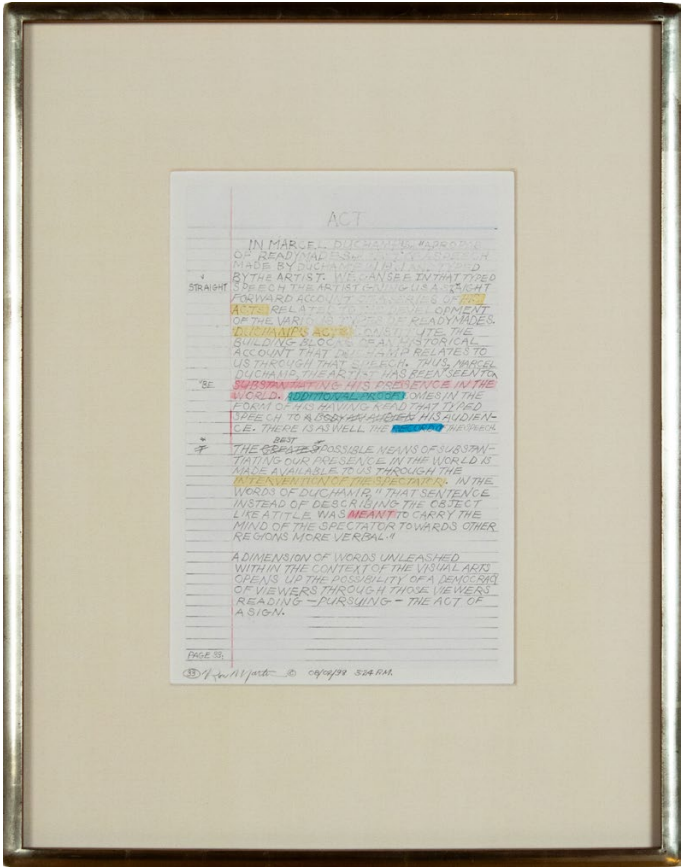 ACT
IN MARCEL DUCHAMP'S "APROPOS
OF READYMADES"
MADE BY DUCHAMP
BY THE ARTIST. WE CAN SEE IN THAT TYPED
STRAIGHT SPEECH THE ARTIST GIVING US A
FORWARD ACCOUNT OF HIS
ACTS RELATED TO DEVELOPMENT
OF THE VARIOUS READYMADES.
DUCHAMP'S ACTS CONSTITUTE THE
BUILDING BLOCKS OF AN HISTORICAL
ACCOUNT THAT DUCHAMP RELATES TO
US THROUGH THAT SPEECH. THUS, MARCEL
DUCHAMP, THE ARTIST HAS BEEN SEEN TO
"BE SUBSTANTIATING HIS PRESENCE IN THE
WORLD. ADDITIONAL PROOF COMES IN THE
FORM OF HIS HAVING READ THAT TYPED
SPEECH TO HIS AUDIEN-
CE. THERE IS AS WELL THE SPEECH.
BEST
OF THE GREATEST POSSIBLE MEANS OF SUBSTAN-
TIATING OUR PRESENCE IN THE WORLD IS
MADE AVAILABLE TO US THROUGH THE
INTERVENTION OF THE SPECTATOR. IN THE
WORDS OF DUCHAMP, "THAT SENTENCE
INSTEAD OF DESCRIBING THE OBJECT
LIKE A TITLE WAS MEANT TO CARRY THE
MIND OF THE SPECTATOR TOWARDS OTHER
REGIONS MORE VERBAL."
A DIMENSION OF WORDS UNLEASHED
WITHIN THE CONTEXT OF THE VISUAL ARTS
OPENS UP THE POSSIBILITY OF A DEMOCRACY
OF VIEWERS THROUGH THOSE VIEWERS
READING — PURSUING — THE ACT OF
A SIGN.
PAGE 33.
33 © 5:24 P.M.